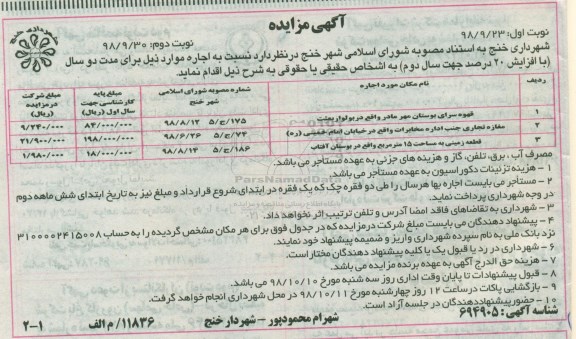 آگهی مزایده
نوبت اول: ۹۸/۹/۲۳
نوبت دوم: ۹۸/۹/۳۰
شهرداری خنج
شهرداری خنج به استناد مصوبه شورای اسلامی شهر خنج در نظر دارد نسبت به اجاره موارد ذیل برای مدت دو سال
(با افزایش ۲۰ درصد جهت سال دوم) به اشخاص حقیقی یا حقوقی به شرح ذیل اقدام نماید.
ردیف نام مکان مورد اجاره شماره مصوبه شورای اسلامی شهر خنج مبلغ پایه کارشناسی جهت سال اول (ریال) مبلغ شرکت در مزایده (ریال)
۱ قهوه سرای بوستان مهر مادر واقع در بولوار بعثت ۵/ج/۱۷۵ ۹۸/۸/۱۲ ۸۴/۰۰۰/۰۰۰ ۹/۲۴۰/۰۰۰
۲ مغازه تجاری جنب اداره مخابرات واقع در خیابان امام خمینی (ره) ۵/ج/۷۴ ۹۸/۶/۲۶ ۱۹۸/۰۰۰/۰۰۰ ۲۱/۹۰۰/۰۰۰
۳ قطعه زمینی به مساحت ۱۵ مترمربع واقع در بوستان آفتاب ۵/ج/۱۸۶ ۹۸/۸/۱۴ ۱۸/۰۰۰/۰۰۰ ۱/۹۸۰/۰۰۰
مصرف آب، برق، تلفن، گاز و هزینه های جزئی به عهده مستأجر می باشد.
۱ - هزینه تزئینات دکوراسیون به عهده مستأجر می باشد.
۲ - مستأجر می بایست اجاره بها هر سال را طی دو فقره چک که یک فقره در ابتدای شروع قرارداد و مبلغ نیز به تاریخ ابتدای شش ماهه دوم
در وجه شهرداری پرداخت نماید.
۳ - شهرداری به تقاضاهای فاقد امضا آدرس و تلفن ترتیب اثر نخواهد داد.
۴ - پیشنهاد دهندگان می بایست مبلغ شرکت در مزایده که در جدول فوق برای هر مکان مشخص گردیده را به حساب ۳۱۰۰۰۰۲۴۱۵۰۰۸
نزد بانک ملی به نام سپرده شهرداری واریز و ضمیمه پیشنهاد خود نمایند.
۶ - شهرداری در رد یا قبول یک یا کلیه پیشنهاد دهندگان مختار است.
۷ - هزینه حق الدرج آگهی به عهده برنده مزایده می باشد.
۸ - قبول پیشنهادات تا پایان وقت اداری روز سه شنبه مورخ ۹۸/۱۰/۱۰ می باشد.
۹ - بازگشایی پاکات در ساعت ۱۲ روز چهارشنبه مورخ ۹۸/۱۰/۱۱ در محل شهرداری انجام خواهد گرفت.
۱۰ - حضور پیشنهاد دهندگان در جلسه آزاد است.
شناسه آگهی: ۶۹۴۹۰۵
شهرام محمودپور - شهردار خنج
۱۱۸۳۶/م الف
۲-۱
ParsNamadData